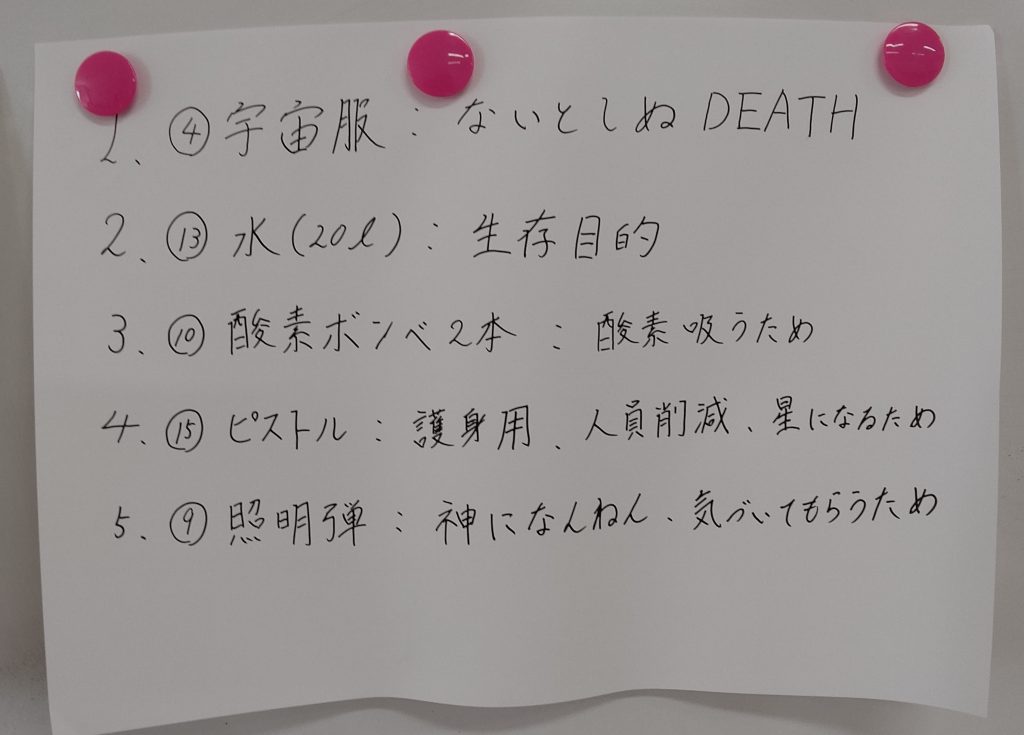 1、④宇宙服：ないとしぬDEATH
2、⑬水(20l)：生存目的
3、⑩酸素ボンベ2本：酸素吸うため
4、⑮ピストル：護身用、人員削減、星になるため
5、⑨照明弾：神になんねん、気づいてもらうため